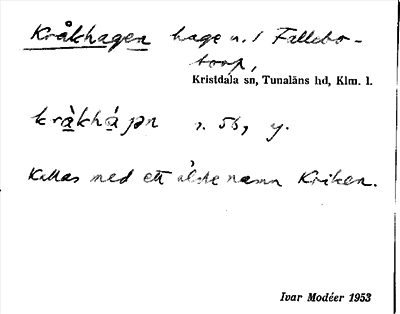 Kråkhagen hage n. I Fallebo-
torp,
Kristdala sn, Tunaläns hd, Klm. l.
kråkhá ɲn s. 56, y.
Kallas med ett äldre namn Kriken.
Ivar Modéer 1953